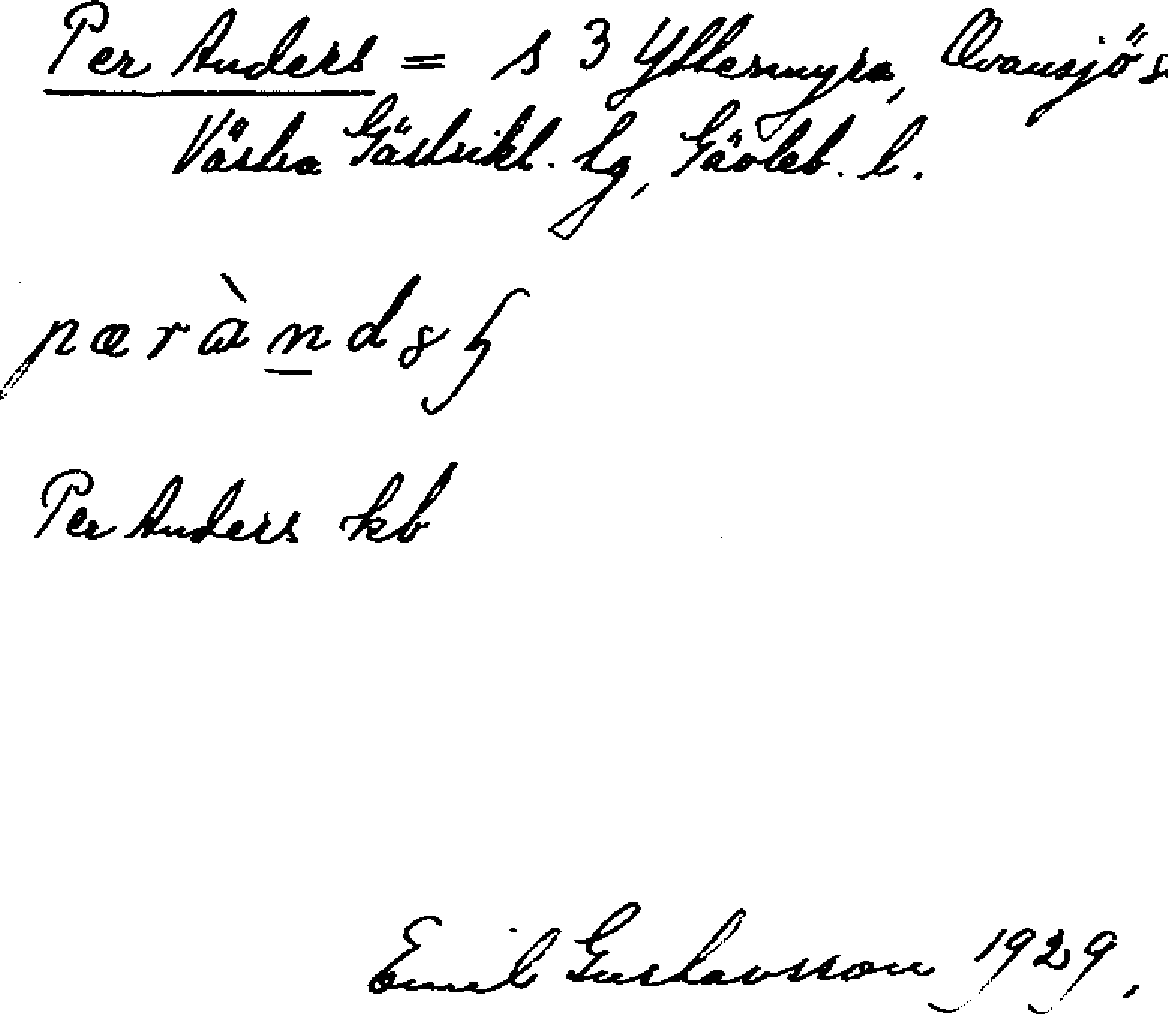 Per Anders = s 3 Yttermyra, Ovansjö s
Västra Gästrikl. hg, Gävleb. l.
Per Anders kb
Emil Gustavsson 1929.